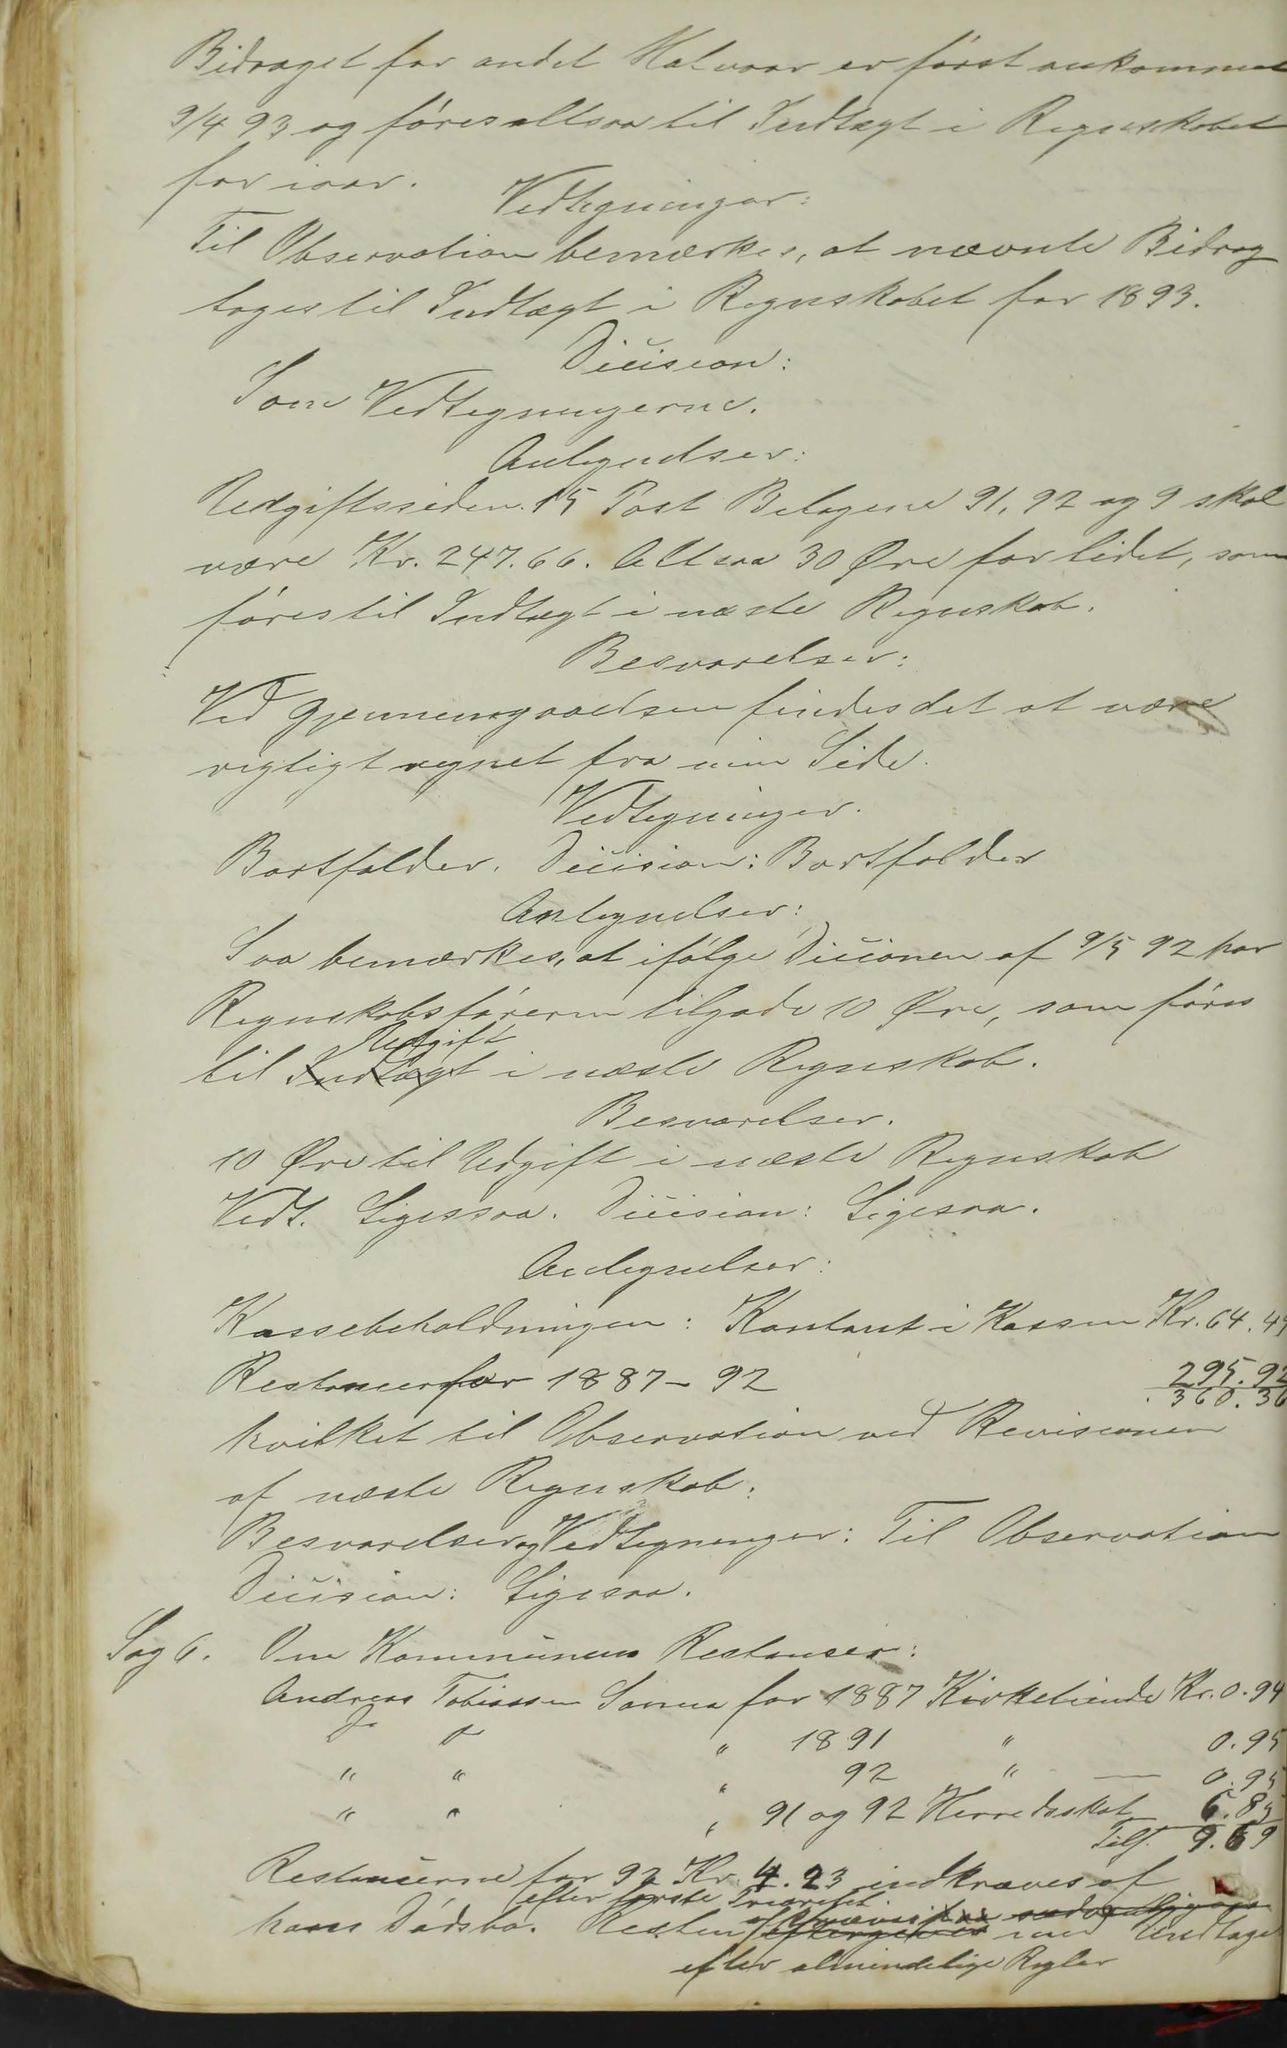 Bidraget for andet Halvaar er først ankommet
9/4 93 og føres altsaa til Indtægt i Regnskabet
for iaar.
Vedtegninger:
Til Observation bemærkes, at nævnte Bidrag
tages til Indtægt i Regnskabet for 1893.
Dicision:
Som Vedtegningerne.
Antegnelser:
Udgiftssiden. 15 Post Belagene 91, 92 og 9 skal
være Kr. 247.66. Altsaa 30 Øre for lidet, som
føres til Indtægt i næste Regnskab.
Besvarelser:
Ved Gjennemgaaelsen findes det at være
rigtigt regnet fra min Side.
Vedtegninger.
Bortfalder. Dicision: Bortfalder
Antegnelser:
Saa bemærkes, at ifølge Dicionen af 9/5 92 har
Regnskabsføreren tilgode 10 Øre, som føres
Udgift
til Indtægt i næste Regnskab.
Besvarelser.
10 Øre til Udgift i næste Regnskab
Vedt. Ligessaa. Dicision: Ligesaa.
Antegnelser:
Kassebeholdningen: Kontant i Kassen Kr. 64.4
Restancer for 1887-92 295.92
360.36
hvilket til Observation ved Revisionen
af næste Regnskab.
Besvarelser og Vedtegninger: Til Observation
Dicision: Ligesaa.
Sag 6. Om Kommunens Restanser:
Andreas Tobiassen for 1887 Kirketiende Kr. 0.94
Do o " 1891 " 0.95
" " " 92 " — 0.95
" " " 91 og 92 Herredsskat 6.85
Tils. 9.69
Restancerne for 92 Kr. 4.23 indkræves af
efter første
hans Dødsbo. Resten med Undtage
efter almindelige Regler